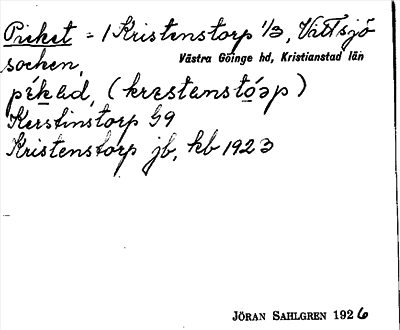 Picket = 1 Kristenstorp 1/3, Vittsjö
socken,
Västra Göinge hd, Kristianstad län
pékəd, (krestənstóəp)
Kerstinstorp G9
Kristenstorp jb, kb 1923
JÖRAN SAHLGREN 1926